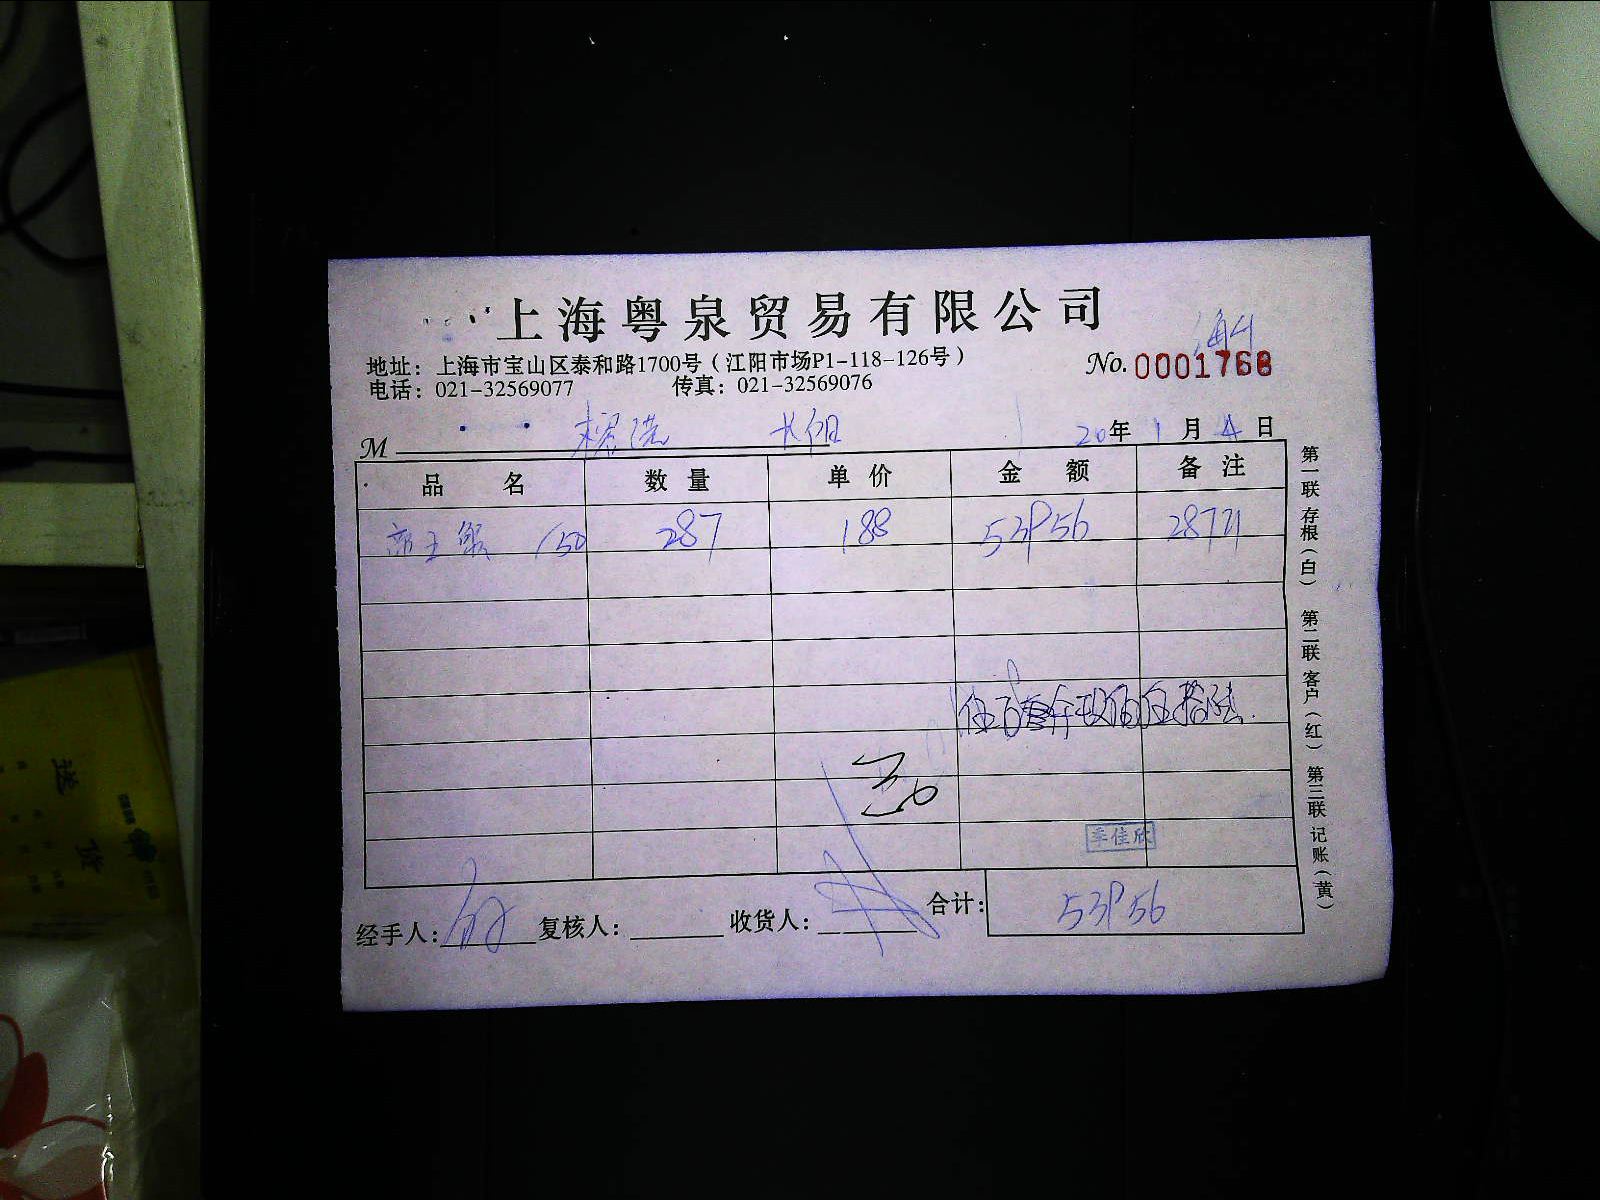 上海粤泉贸易有限公司
地址：上海市宝山区泰和路1700号（江阳市场P1-118-126号）
No.0001768
电话：021-32569077 传真：021-32569076
M 20年1月4日
品名 数量 单价 金额 备注
帝王鲍 150 287 188 53956 287
伍万叁仟玖佰伍拾陆
季佳欣
经手人： 复核人： 收货人： 合计：53956
第一联 存根（白） 第二联 客户（红） 第三联 记账（黄）
送货